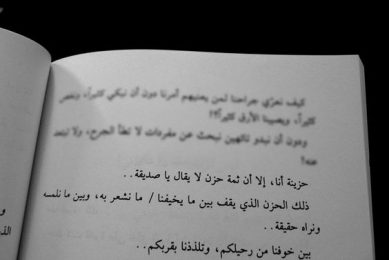 كيف نعرّي جراحنا لمن يعنيهم أمرنا دون أن نبكي كثيراً، ونغص
كثيراً، ويصيبنا الأرق كثيراً؟!
ودون أن نبدو تائهين نبحث عن مفردات لا تطأ الجرح، ولا تبتعد
عنه!
حزينة أنا، إلا أن ثمة حزن لا يقال يا صديقة..
ذلك الحزن الذي يقف بين ما يخيفنا / ما نشعر به، وبين ما نلمسه
ونراه حقيقة..
بين خوفنا من رحيلكم، وتلذذنا بقربكم..
و